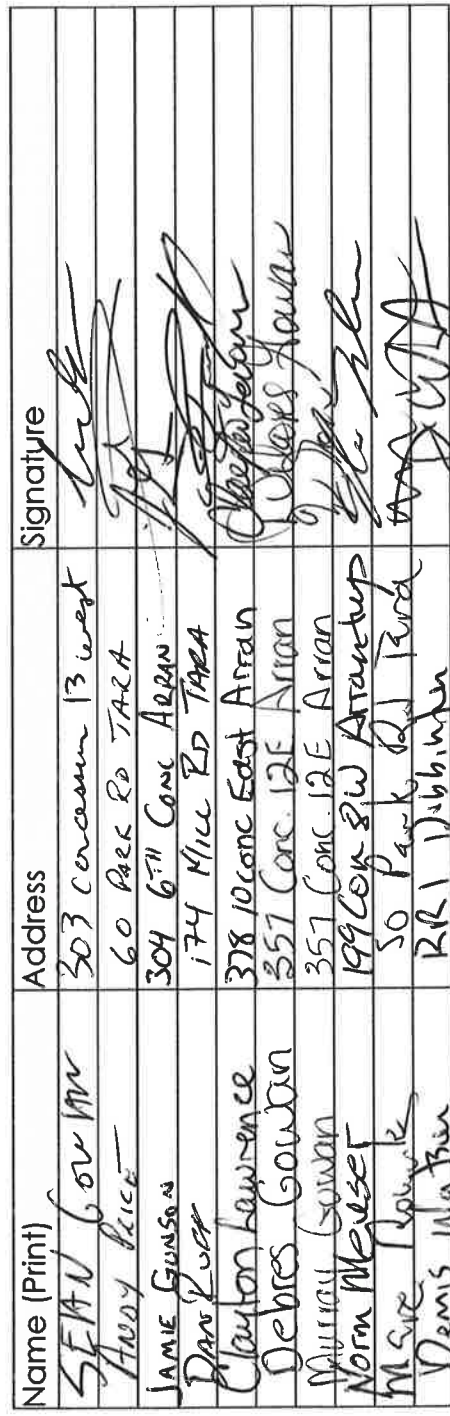 Name (Print) Address Signature
SEAN GOWAN 303 Concession 13 west
ANDY PRICE 60 PARK RD TARA
JAMIE GUNSON 304 6TH CONC ARRAN
DAN 174 MILL RD TARA
Clayton Lawrence 378 10 conc East Arran
Debres Gowan 357 Conc. 12E Arran Debres Gowan
Murray Gowan 357 Conc. 12E Arran
Norm 199 Con 8 W Arran twp
50 Park Rd Tara
Denis RR1 Dobbinton